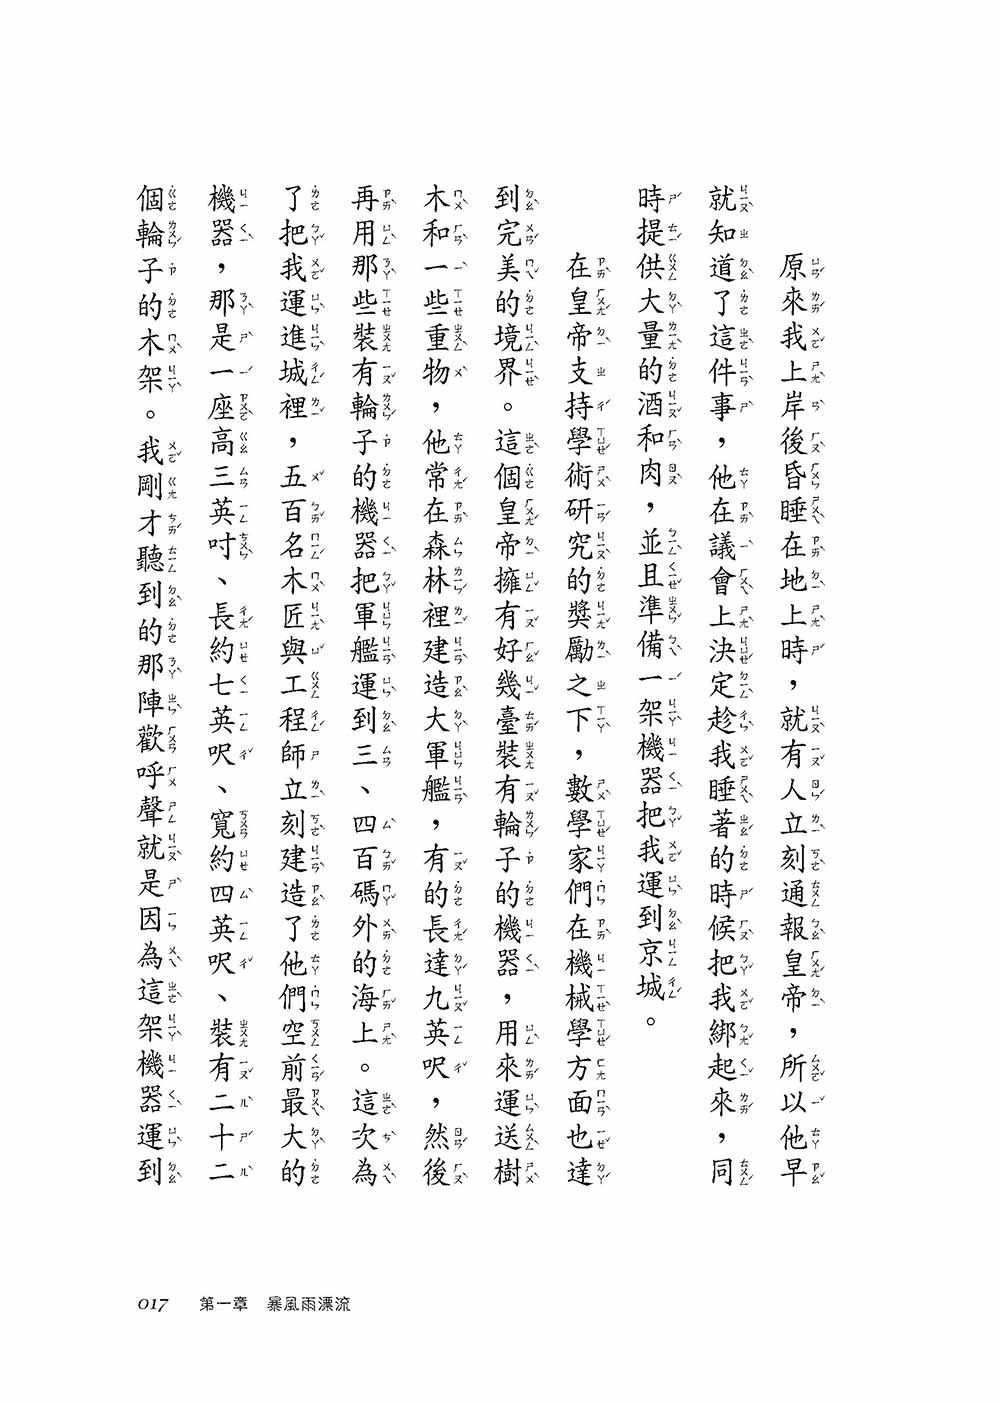 原來我上岸後昏睡在地上時，就有人立刻通報皇帝，所以他早
就知道了這件事，他在議會上決定趁我睡著的時候把我綁起來，同
時提供大量的酒和肉，並且準備一架機器把我運到京城。
在皇帝支持學術研究的獎勵之下，數學家們在機械學方面也達
到完美的境界。這個皇帝擁有好幾臺裝有輪子的機器，用來運送樹
木和一些重物，他常在森林裡建造大軍艦，有的長達九英呎，然後
再用那些裝有輪子的機器把軍艦運到三、四百碼外的海上。這次為
了把我運進城裡，五百名木匠與工程師立刻建造了他們空前最大的
機器，那是一座高三英吋、長約七英呎、寬約四英呎、裝有二十二
個輪子的木架。我剛才聽到的那陣歡呼聲就是因為這架機器運到
017 第一章 暴風雨漂流